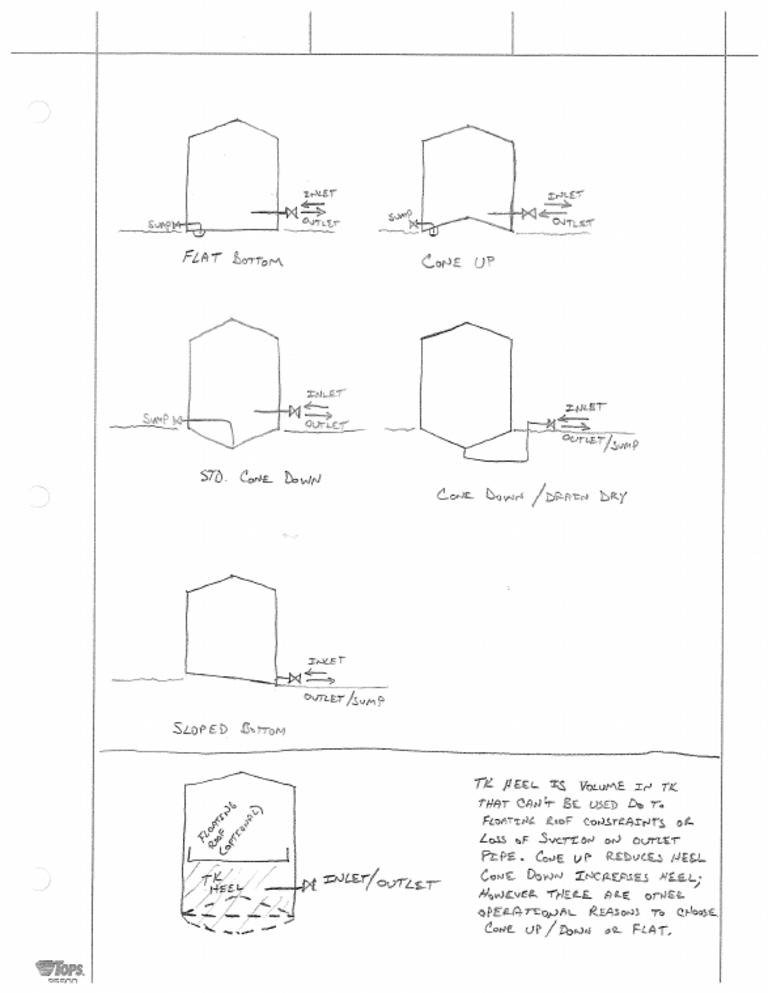 INLET
SUMP
OUTLET
FLAT BOTTOM
INLET
SUMP
OUTLET
CONE UP
INLET
SUMP
OUTLET
STD. CONE DOWN
INLET
OUTLET/SUMP
CONE DOWN / DRAIN DRY
INLET
OUTLET/SUMP
SLOPED BOTTOM
FLOATING
ROOF
(OPTIONAL)
TK
HEEL
INLET/OUTLET
TK HEEL IS VOLUME IN TK
THAT CAN'T BE USED DO TO
FLOATING ROOF CONSTRAINTS OR
LOSS OF SUCTION ON OUTLET
PIPE. CONE UP REDUCES HEEL
CONE DOWN INCREASES HEEL;
HOWEVER THERE ARE OTHER
OPERATIONAL REASONS TO CHOOSE
CONE UP/DOWN OR FLAT.
TOPS.